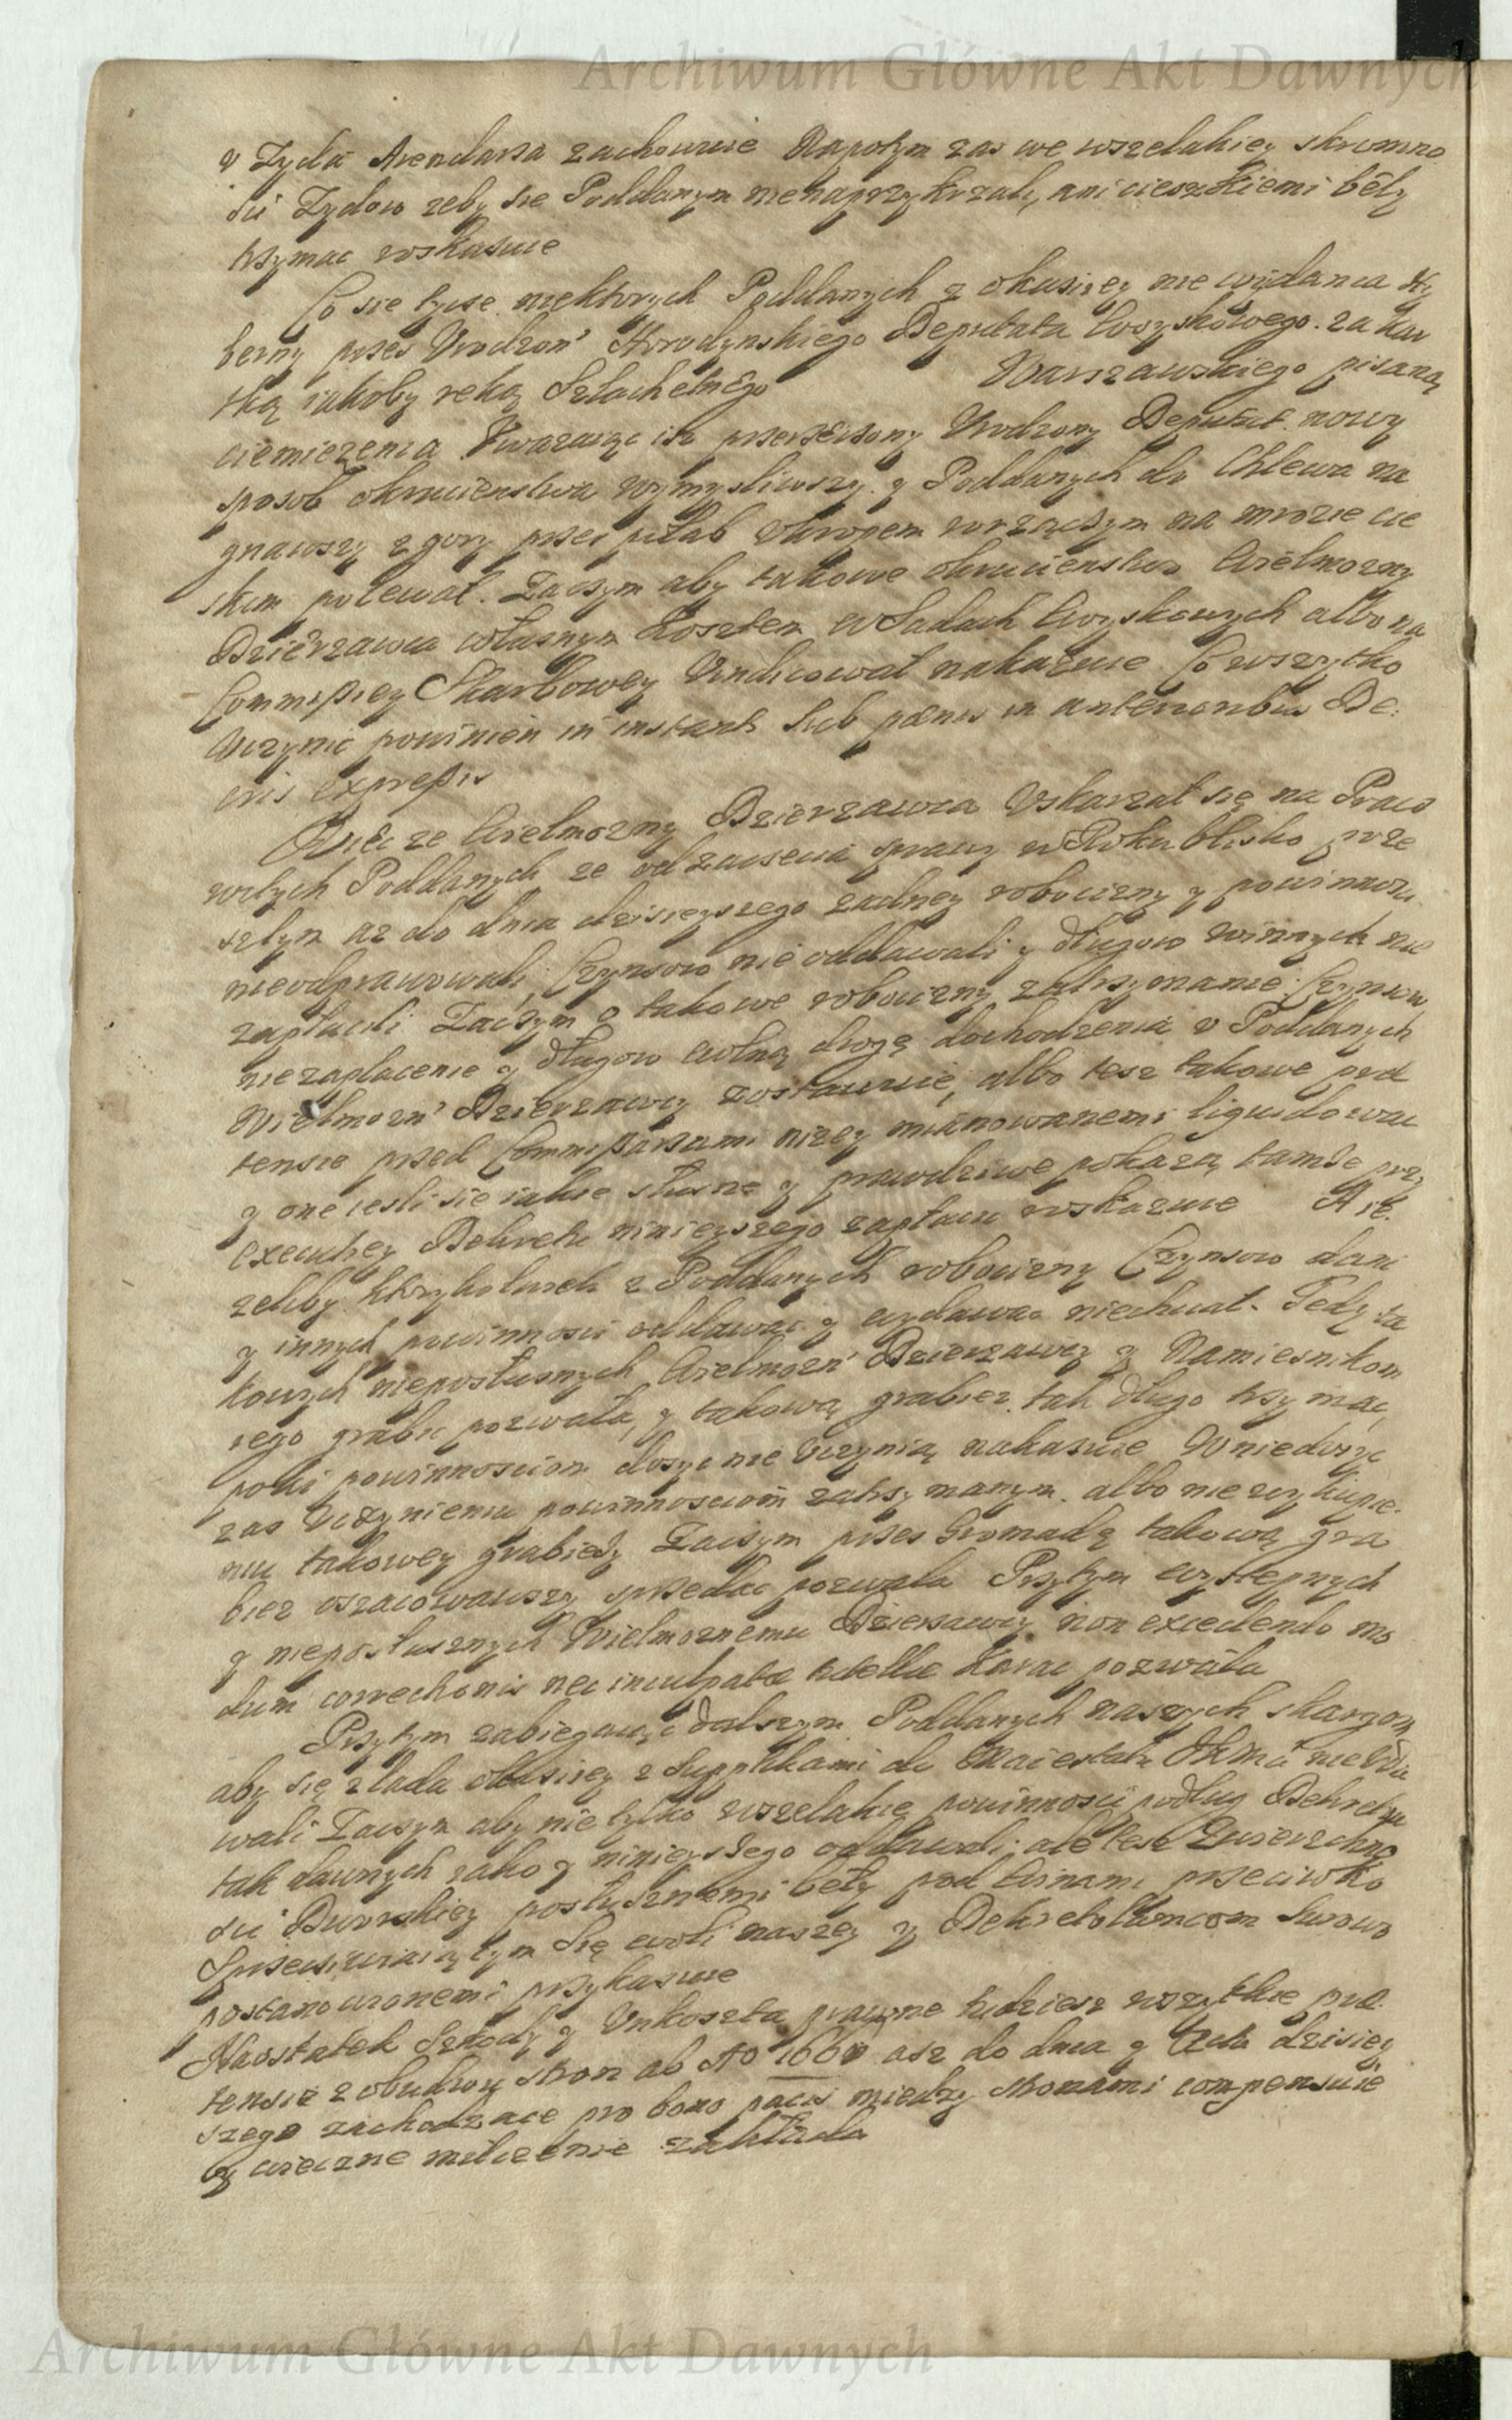 Archiwum Główne Akt Dawnych
v Zyda Arendarza zachowuie Napotym zas we wszelakiey skromno
sci Zydow zeby sie Poddanym nienaprzykrzali, ani cieszkiemi bęly
trzymac wskazuie
Co sie tycze niektorych Poddanych z okasiyey nie wydania Hy
berny przes Vrodzon' Horodynskiego Deputata Woyskowego za kar
tką iakoby reką Szlachetnego Warszawskiego pisaną
ciemiezenia Vwazaiąc iz przerzeczony Vrodzony Deputat nowy
sposob okrucienstwa wymysliwszy y Poddanych do Chlewa na
gnawszy z gory przes pułab Vkropem wrzączym na mrozie cie
skim polewał. Zaczym aby takowe okrucienstwo Wielmozny
Dzierzawca własnym kosztem w Sadach Woyskowych albo na
Commissiey Skarbowey Vindicował nakazuie. Co wszytko
Vczynic powinien in instanti sub pœnis in anterioribus De:
cris expressis
Wiec ze Wielmozny Dzierzawca Vskarzał się na Praco
witych Poddanych ze od zaczecia sprawy w Roku blisko prze
szłym az do dnia dzisieyszego zadney robocizny y powinnosci
nieodprawowali, Czynszow nie oddawali y długow winnych nie
zapłacili Zaczym o takowe robocizny zatrzymanie, Czynszow
niezaplacenie y długow wolną drogę dochodzenia v Poddanych
Wielmozn' Dzierzawcy zostawuie, albo tesz takowe pre
tensie przed Commissarzami nizey mianowanemi liquidowac
y one iesli sie iakie słuszne y prawdziwe pokazą tamze przy
executiey Dekretu ninieyszego zapłacic wskazuie A ie.
zeliby ktorykolwiek z Poddanych robocizny Czynszow dani
y innych powinnosci oddawac y wydawac niechciał. Tedy ta
kowych nieposłusznych Wielmozn' Dzierzawcy y Namiesnikom
iego grabic pozwala, y takową grabiez tak długo trzymac,
poki powinnosciom dosyc nie Vczynią nakazuie W niedosyc
zas Vczynieniu powinnosciom zatrzymanym albo nie wykupie.
niu takowey grabiezy Zaczym przes Gromadę takową gra
biez oszacowawszy sprzedac pozwala Przytym wystepnych
y nieposłusznych Wielmoznemu Dzierzawcy non excedendo mo
dum correctionis nec inculpatæ tutellæ karac pozwala
Przytym zabiegaiąc dalszym Poddanych naszych skargom
aby się z lada okasiiey z supplikami do Maiestatu JKMci nie Vda
wali Zaczym aby nie tylko wszelakie powinnosci podług Dekretu
tak dawnych iako y ninieyszego oddawali; ale tesz Zwierzchno
sci Dworskiey posłusznemi bęły pod winami przeciwko
Sprzeciwiaiącym się woli naszey y Dekretołomcom surowo
postanowionemi przykazuie
Naostatek Szkody y Vnkoszta prawne tudziesz wszytkie pre.
tensie z obudwu stron ab Aō 1660 asz do dnia y Actu dzisiey
szego zachodzące pro bono pacis miedzy stronami compensuie
y wieczne milczenie zakłada
Archiwum Główne Akt Dawnych